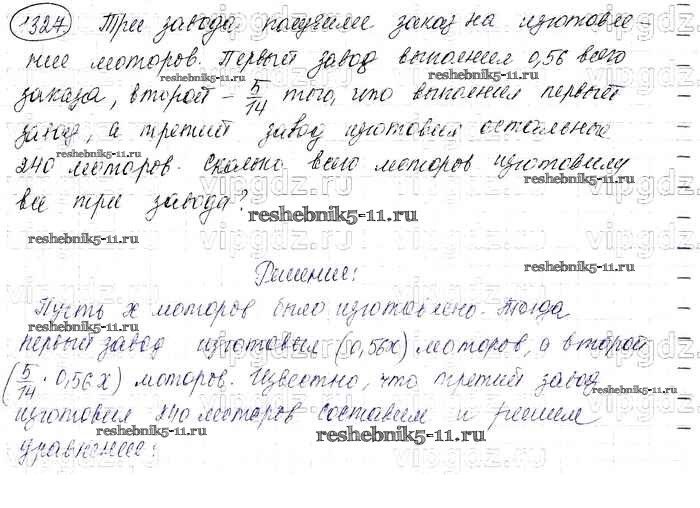 1327 Три завода получили заказ на изготовле-
ние моторов. Первый завод выполнил 0,56 всего
reshebnik5-11.ru
заказа, второй – 5/14 того, что выполнил первый
завод, а третий завод изготовил остальные
reshebnik5-11.ru
240 моторов. Сколько всего моторов изготовили
все три завода?
reshebnik5-11.ru
reshebnik5-11.ru
Решение:
reshebnik5-11.ru
Пусть x моторов было изготовлено. Тогда
reshebnik5-11.ru
первый завод изготовил (0,56x) моторов, а второй
(5/14 · 0,56x) моторов. Известно, что третий завод
изготовил 240 моторов составим и решим
reshebnik5-11.ru
reshebnik5-11.ru
уравнение: